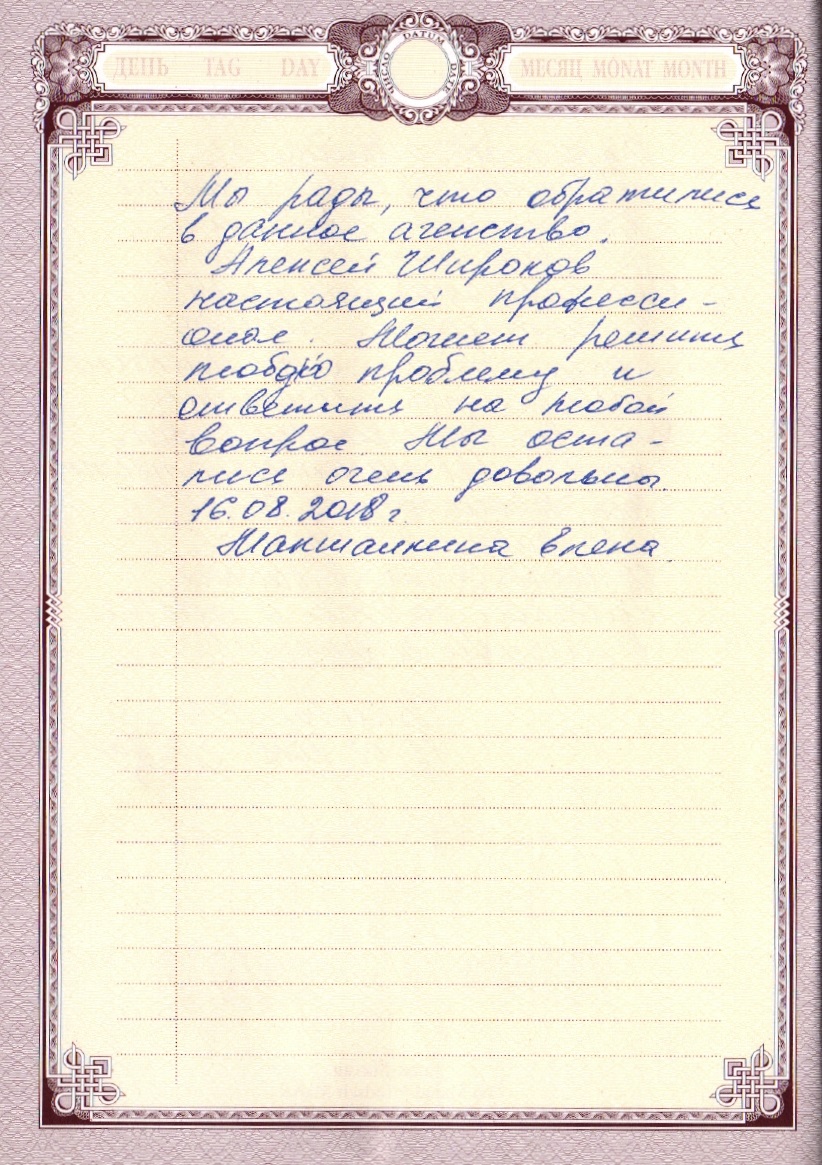 ДЕНЬ TAG DAY
ЧИСЛО DATUM DATE
МЕСЯЦ MONAT MONTH
Мы рады, что обратились
в данное агенство.
Алексей Широков
настоящий професси-
онал. Может решить
любую проблему и
ответить на любой
вопрос. Мы оста-
лись очень довольны.
16.08.2018 г.
Елена